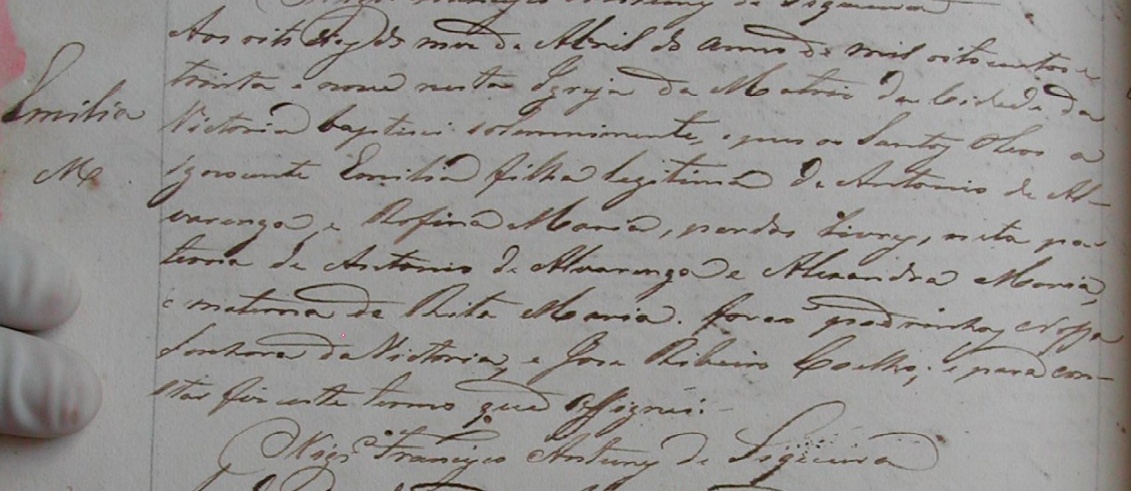 Aos oito dias do mez de Abril do anno de mil oito centos e
trinta e nove nesta Igreja da Matriz da Cidade da
Emilia
Victoria baptisei solemnimente, e pus os Santos Oleos a
Ma
ignocente Emilia filha legitima de Antonio de Al-
varenga, e Rofina Maria, pardos livres, neta pa-
terna de Antonio de Alvarenga e Alexandra Maria,
e materna de Rita Maria. forão padrinhos Nossa
Senhora da Victoria, e Jose Ribeiro Coelho; e para con-
star fiz este termo que assignei.
Francisco Antunes de Siqueira